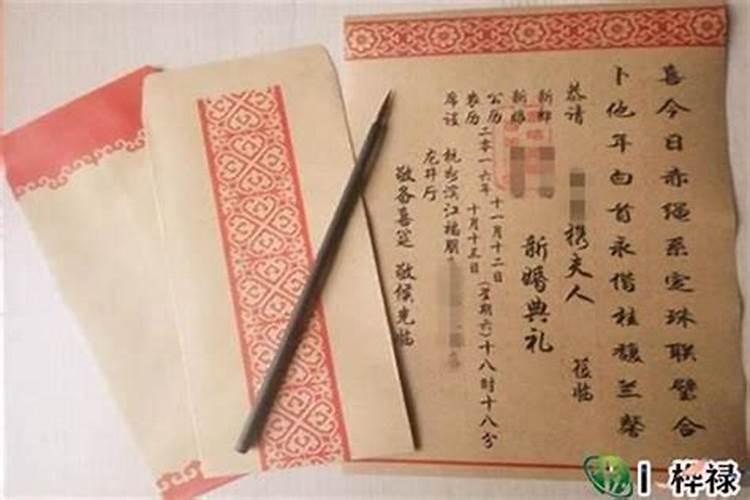 喜今日赤绳系定珠联璧合
卜他年白首永偕桂馥兰馨
恭请 携夫人 莅临
新郎
新娘
新婚典礼
公历二零一六年十一月十二日(星期六)十八时十八分
农历 十月十三日
席设 杭州滨江福朋
龙井厅
敬备喜筵 敬候光临
桦禄